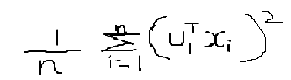 \frac{1}{n} \sum_{i=1}^{n} (u_i^T x_i)^2